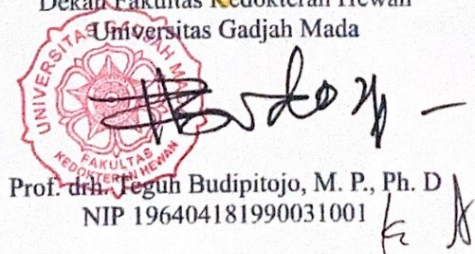 Dekan Fakultas Kedokteran Hewan
Universitas Gadjah Mada
UNIVERSITAS GADJAH MADA
FAKULTAS
KEDOKTERAN HEWAN
Prof. drh. Teguh Budipitojo, M. P., Ph. D
NIP 196404181990031001